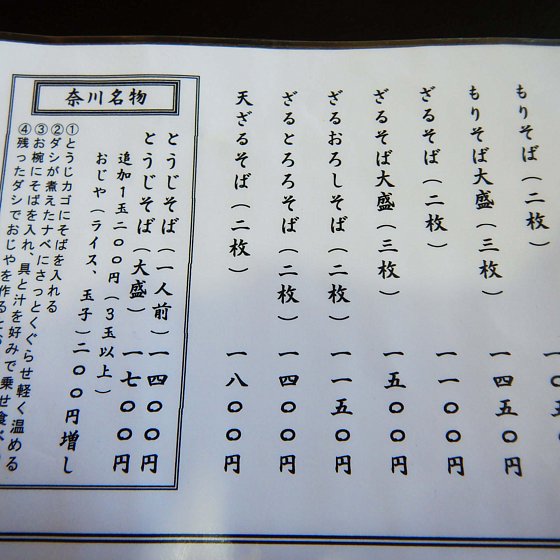 もりそば（二枚）
もりそば大盛（三枚） 一四五〇円
ざるそば（二枚） 一一〇〇円
ざるそば大盛（三枚） 一五〇〇円
ざるおろしそば（二枚） 一一五〇円
ざるとろろそば（二枚） 一四〇〇円
天ざるそば（二枚） 一八〇〇円
奈川名物
とうじそば（一人前）一四〇〇円
とうじそば（大盛）一七〇〇円
追加１玉二〇〇円（３玉以上）
おじや（ライス、玉子）二〇〇円増し
①とうじカゴにそばを入れる
②ダシが煮えたナベにさっとくぐらせ軽く温める
③お椀にそばを入れ、具と汁を好みで乗せ食べ
④残ったダシでおじやを作る